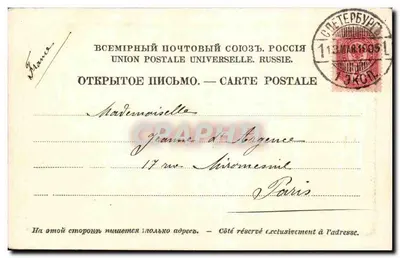 France
ВСЕМІРНЫЙ ПОЧТОВЫЙ СОЮЗЪ. РОССІЯ
UNION POSTALE UNIVERSELLE. RUSSIE.
ОТКРЫТОЕ ПИСЬМО. — CARTE POSTALE
С.ПЕТЕРБУРГЪ
1 ЭКСП.
Mademoiselle
Jeanne d'Argence
17 rue Miromesnil
Paris
На этой сторонѣ пишется только адресъ. — Côté réservé exclusivement à l'adresse.